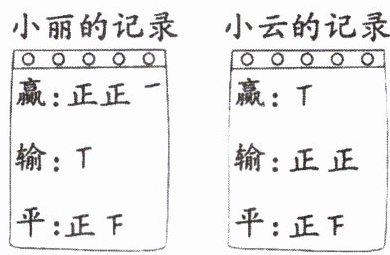 小丽的记录
赢:正正一
输:丅
平:正下
小云的记录
赢:丅
输:正正
平:正下